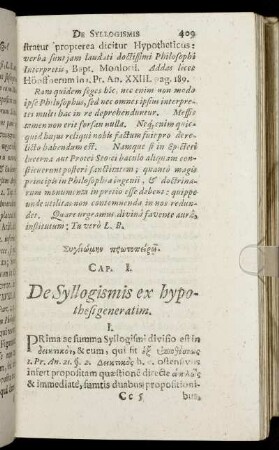 DE SYLLOGISMIS 409
stratur propterea dicitur Hypotheticus:
verba sunt jam laudati doctissimi Philosophi
Interpretis, Bapt. Monlorii. Addas licet
in 1. Pr. An. XXIII. pag. 189.
Ram quidem seges hîc, nec enim non modo
ipse Philosophus, sed nec omnes ipsum interpre-
tes multi hac in re deprehenduntur. Messis
tamen non erit forsan nulla. Neq; enim quic-
quid hujus reliqui nobis factum fuit pro dere-
licto habendum est. Namque si in Epicteti
lucerna aut Protei Stoici baculo aliquam con-
stituerunt posteri sanctitatem; quanto magis
principis in Philosophia ingenii, & doctrina-
rum monumenta in pretio esse debent; quippe
unde utilitas non contemnenda in nos redun-
det. Quare urgeamus divinâ favente aurâ,
institutum: Tu verò L. B.
CAP. I.
De Syllogismis ex hypo-
thesi generatim.
I.
PRima ac summa Syllogismi divisio est in
δεικτικὸν, & eum, qui fit ἐξ ὑποθέσεως
1. Pr. An. 21. §. 2. Δεικτικὸς h. e. ostensivus
infert propositam quæstionē directe ἁπλῶς
& immediatè, sumtis duabus propositioni-
Cc 5 bus,